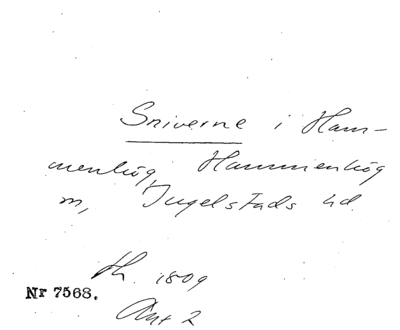 Sniverne i Ham-
menhög, Hammenhög
m, Ingelstads hd.
th. 1809
Ant 2
Nr 7568.